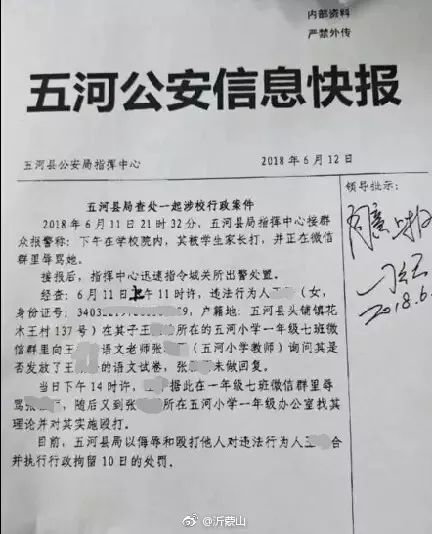 内部资料
严禁外传
五河公安信息快报
五河县公安局指挥中心
2018年6月12日
领导批示:
五河县局查处一起涉校行政案件
2018年6月11日21时32分,五河县局指挥中心接群
众报警称:下午在学校院内,其被学生家长打,并正在微信
群里辱骂她。
接报后,指挥中心迅速指令城关所出警处置。
经查:6月11日上午11时许,违法行为人王(女,
身份证号:3403229,户籍地:五河县头铺镇花
木王村137号)在其子王所在的五河小学一年级七班微
信群里向王语文老师张(五河小学教师)询问其是
否发放了王的语文试卷,张未做回复。
当日下午14时许,据此在一年级七班微信群里辱
骂张,随后又到张所在五河小学一年级办公室找其
理论并对其实施殴打。
目前,五河县局以侮辱和殴打他人对违法行为人王合
并执行行政拘留10日的处罚。
2018.6
沂蒙山